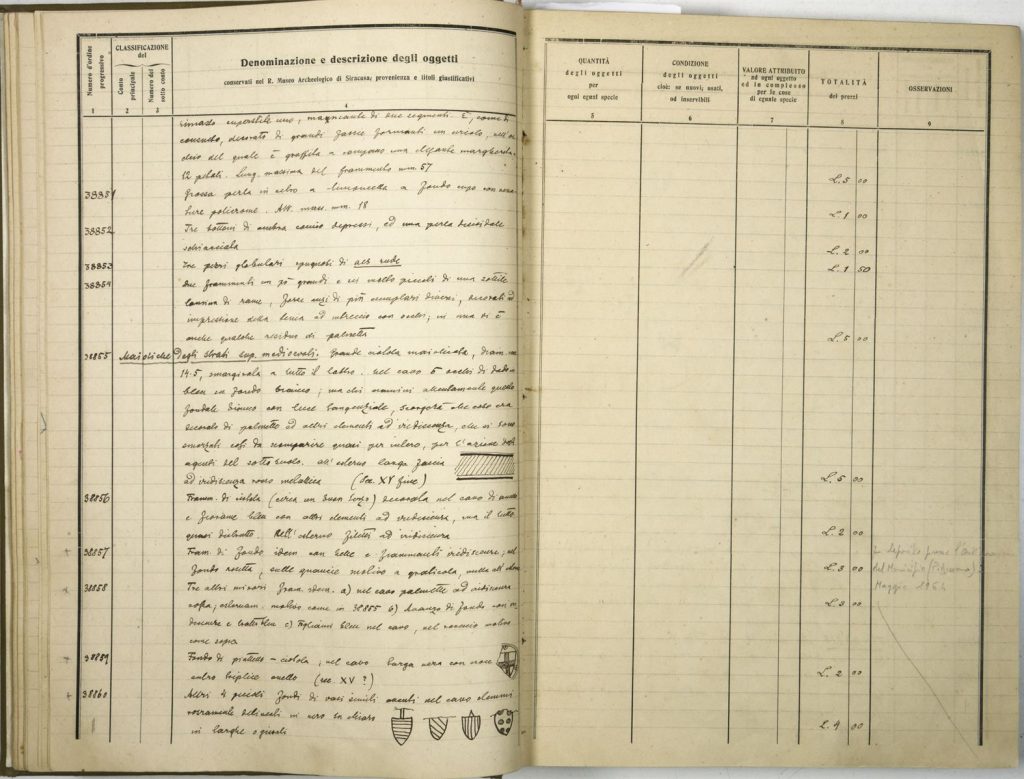 Numero d'ordine progressivo
CLASSIFICAZIONE del
Conto principale
Numero del sotto conto
Denominazione e descrizione degli oggetti
conservati nel R. Museo Archeologico di Siracusa; provenienza e titoli giustificativi
1 2 3 4
rimasto superstite uno, mancante di due segmenti. È, come di
consueto, decorato di grandi fasce formanti un circolo, nell'
del quale è graffita a compasso una elegante margherita
12 petali. Lung. massima del frammento mm. 57
38851 Grossa perla in vetro a fondo cupo con
policrome. Alt. mass. mm. 18
38852 Tre bottoni di ambra conico depressi, ed una perla discoidale
schiacciata
38853 Tre pezzi globulari spugnosi di aes rude
38854 Due frammenti un pò grandi e sei molto piccoli di una sottile
lamina di rame, forse anzi di più esemplari diversi, decorati ad
impressione della ad intreccio con occhi; in una di è
anche qualche residuo di palmetta
38855 Maioliche degli strati sup. medioevali. Grande ciotola maiolicata, diam.
14.5, smarginata a tutto il labbro. Nel cavo 5 occhi di dado
bleu su fondo bianco; ma chi esamini attentamente quello
fondale bianco con luce tangenziale, scorgerà che esso era
decorato di palmette ed altri elementi ad iridiscenza, che si sono
smorzati così da scomparire quasi per intero, per l'azione degli
agenti del sottosuolo. All'esterno larga fascia
ad iridiscenza rosso (Sec. XV fine)
38856 Framm. di ciotola (circa un buon terzo) decorata nel cavo di
e fiorame bleu con altri elementi ad iridiscenza, ma il tutto
quasi distrutto. Nell'esterno filetti ad iridiscenza
+ 38857 Fram. di fondo idem con belle e iridiscenze; nel
fondo rosetta, sulle motivo a graticola, nulla all'
+ 38858 Tre altri minori fram. idem. a) nel cavo palmette ad iridiscenza
; esternam. motivo come in 38855 b) Avanzo di fondo con
e bleu c) bleu nel cavo, nel rovescio motivo
come sopra
+ 38859 Fondo di piattello - ciotola; nel cavo targa nera con croce
entro triplice anello (sec. XV ?)
+ 38860 Altri 4 piccoli fondi di vasi simili aventi nel cavo
delineati in nero su chiaro
in targhe
QUANTITÀ
degli oggetti
per
ogni egual specie
CONDIZIONE
degli oggetti
cioè: se nuovi, usati,
od inservibili
VALORE ATTRIBUITO
ad ogni oggetto
ed in complesso
per le cose
di eguale specie
TOTALITÀ
dei prezzi
OSSERVAZIONI
5 6 7 8 9
L. 5 00
L. 1 00
L. 2 00
L. 1 50
L. 5 00
L. 5 00
L. 2 00
L. 3 00
L. 3 00
L. 2 00
L. 4 00
del Municipio
Maggio 1964